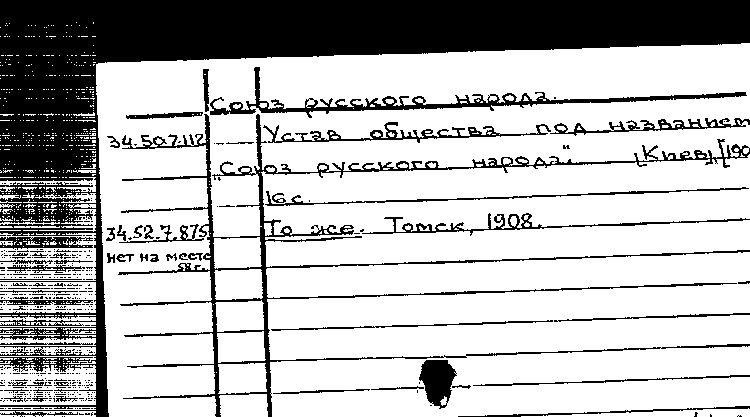 Союз русского народа.
34.50.7.112 Устав общества под названием
„Союз русского народа“. [Киев], [190
16 с.
34.52.7.875 То же. Томск, 1908.
нет на месте
58 г.